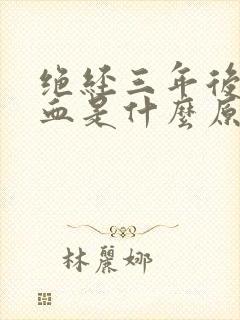 绝经三年後
血是什麼原
林麗娜